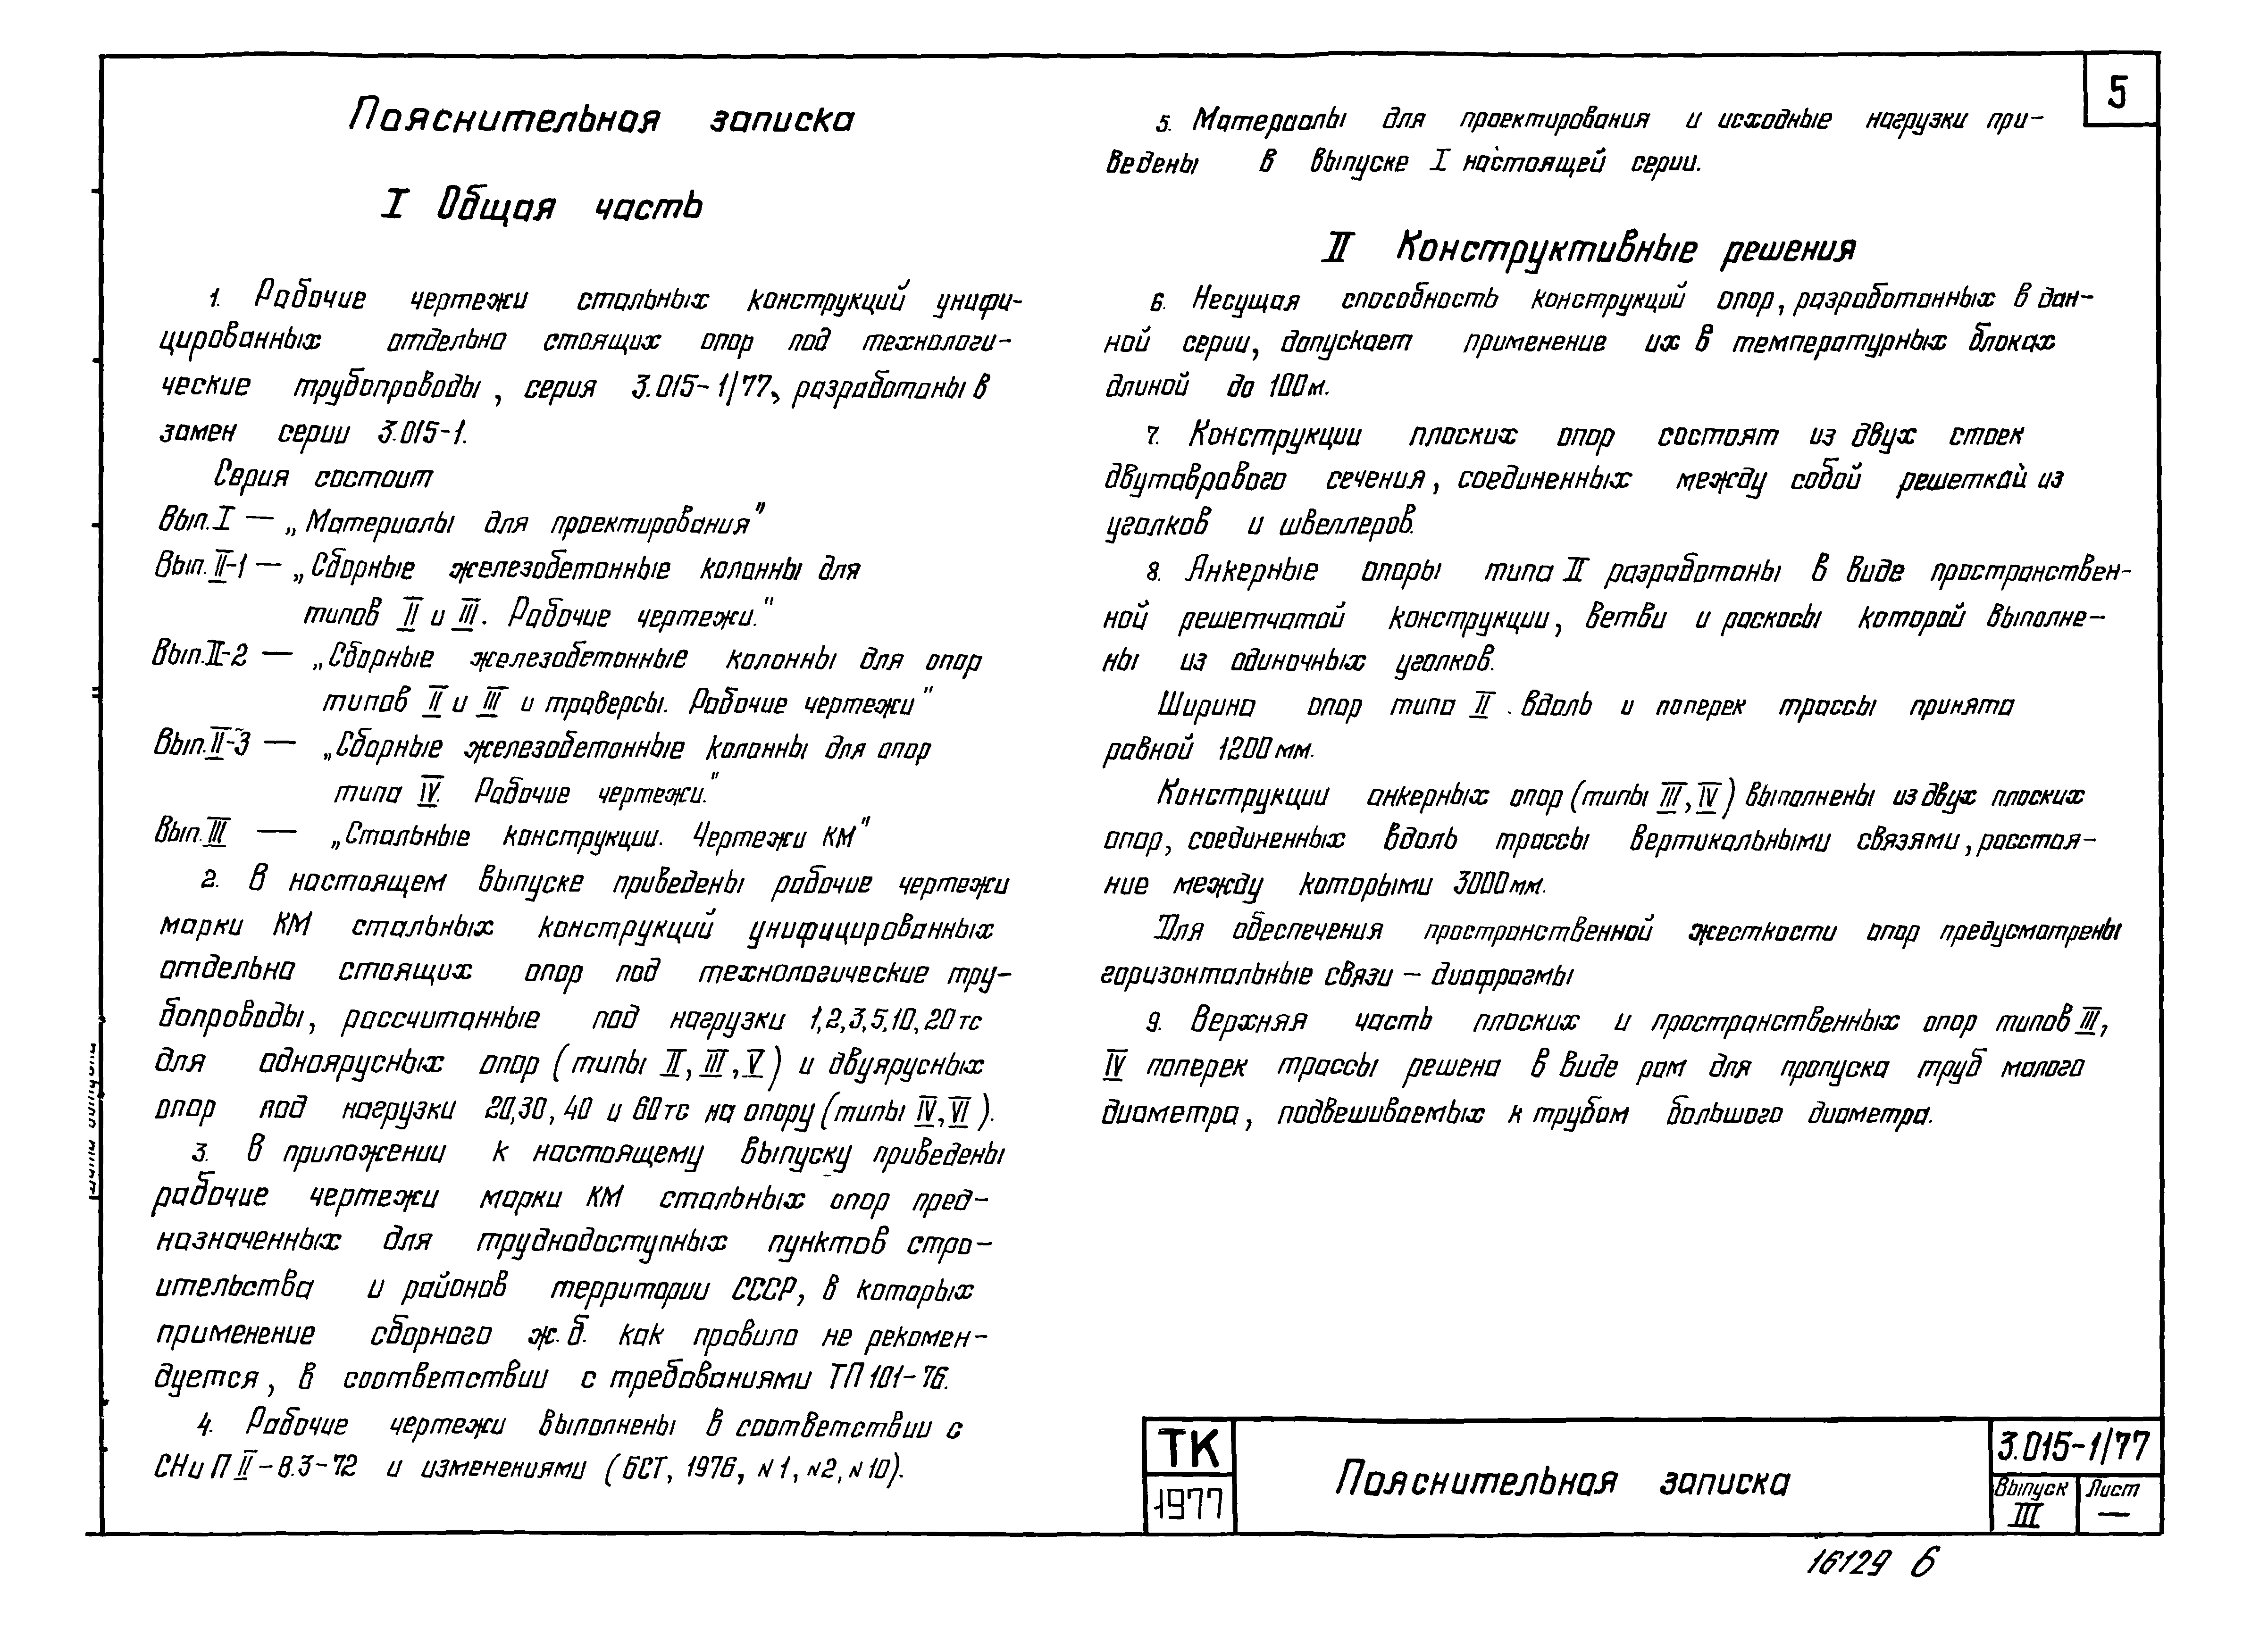 5
Пояснительная записка
I Общая часть
1. Рабочие чертежи стальных конструкций унифи-
цированных отдельно стоящих опор под технологи-
ческие трубопроводы, серия 3.015-1/77, разработаны в
замен серии 3.015-1.
Серия состоит
Вып. I — „Материалы для проектирования"
Вып. II-1 — „Сборные железобетонные колонны для
типов II и III. Рабочие чертежи."
Вып. II-2 — „Сборные железобетонные колонны для опор
типов II и III и траверсы. Рабочие чертежи"
Вып. II-3 — „Сборные железобетонные колонны для опор
типа IV. Рабочие чертежи."
Вып. III — „Стальные конструкции. Чертежи КМ"
2. В настоящем выпуске приведены рабочие чертежи
марки КМ стальных конструкций унифицированных
отдельно стоящих опор под технологические тру-
бопроводы, рассчитанные под нагрузки 1,2,3,5,10,20 тс
для одноярусных опор (типы II, III, V) и двуярусных
опор под нагрузки 20,30,40 и 60 тс на опору (типы IV, VI).
3. В приложении к настоящему выпуску приведены
рабочие чертежи марки КМ стальных опор пред-
назначенных для труднодоступных пунктов стро-
ительства и районов территории СССР, в которых
применение сборного ж.б. как правило не рекомен-
дуется, в соответствии с требованиями ТП 101-76.
4. Рабочие чертежи выполнены в соответствии с
СНиП II-В.3-72 и изменениями (БСТ, 1976, N1, N2, N10).
5. Материалы для проектирования и исходные нагрузки при-
ведены в выпуске I настоящей серии.
II Конструктивные решения
6. Несущая способность конструкций опор, разработанных в дан-
ной серии, допускает применение их в температурных блоках
длиной до 100 м.
7. Конструкции плоских опор состоят из двух стоек
двутаврового сечения, соединенных между собой решеткой из
уголков и швеллеров.
8. Анкерные опоры типа II разработаны в виде пространствен-
ной решетчатой конструкции, ветви и раскосы которой выполне-
ны из одиночных уголков.
Ширина опор типа II вдоль и поперек трассы принята
равной 1200 мм.
Конструкции анкерных опор (типы III, IV) выполнены из двух плоских
опор, соединенных вдоль трассы вертикальными связями, расстоя-
ние между которыми 3000 мм.
Для обеспечения пространственной жесткости опор предусмотрены
горизонтальные связи – диафрагмы
9. Верхняя часть плоских и пространственных опор типов III,
IV поперек трассы решена в виде рам для пропуска труб малого
диаметра, подвешиваемых к трубам большого диаметра.
ТК
1977
Пояснительная записка
3.015-1/77
Выпуск III
Лист —
16129 6